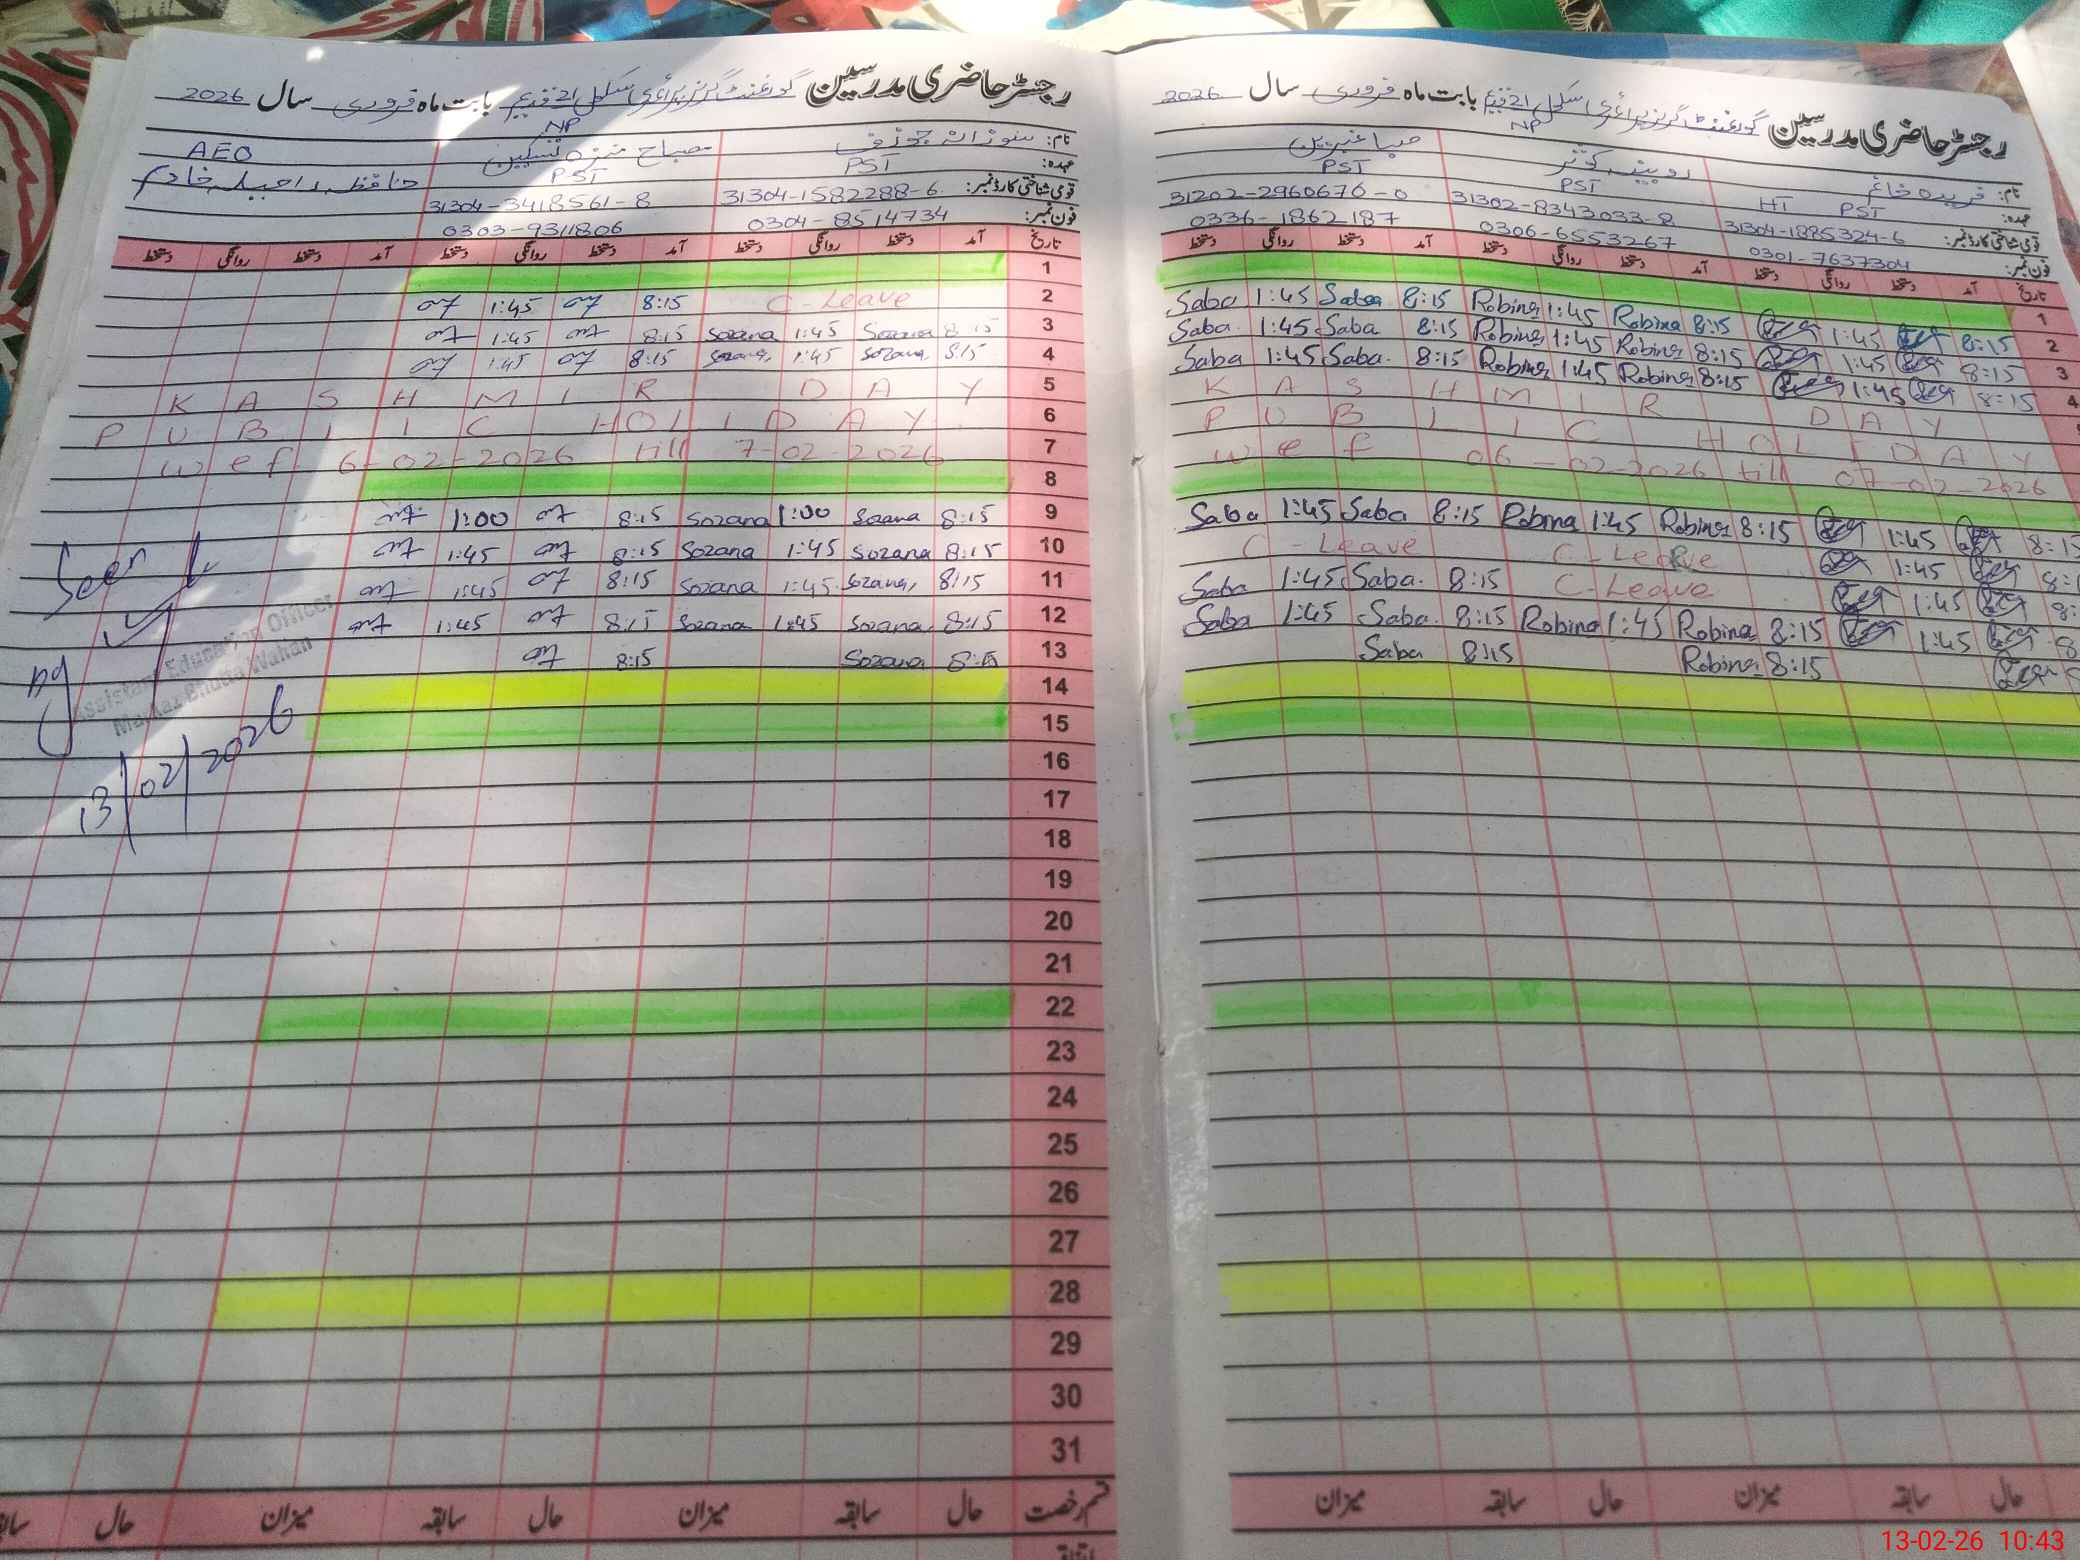 رجسٹر حاضری مدرسین گورنمنٹ گرلز پرائمری سکول 21 فقیر بابت ماہ فروری سال 2026
NP
نام: سوزانہ جوزف مصباح منزہ تسکین AEO
عہدہ: PST PST حافظہ راحیلہ خادم
قومی شناختی کارڈ نمبر: 31304-1582288-6 31304-3418561-8
فون نمبر: 0304-8514734 0303-9311806
تاریخ آمد دستخط روانگی دستخط آمد دستخط روانگی دستخط آمد دستخط روانگی دستخط
1
2 C-Leave 8:15 1:45
3 8:15 Sozana 1:45 Sozana 8:15 1:45
4 8:15 Sozana 1:45 Sozana 8:15 1:45
5 KASHMIR DAY
6 PUBLIC HOLIDAY
7 wef 6-02-2026 till 7-02-2026
8
9 8:15 Sozana 1:00 Sozana 8:15 1:00
10 8:15 Sozana 1:45 Sozana 8:15 1:45
11 8:15 Sozana 1:45 Sozana 8:15 1:45
12 8:15 Sozana 1:45 Sozana 8:15 1:45
13 8:15 Sozana 8:15
14
15
16
17
18
19
20
21
22
23
24
25
26
27
28
29
30
31
قسم رخصت حال سابقہ میزان حال سابقہ میزان حال
Seen
Assistant Education Officer
Markaz Bhutta Wahan
13/02/2026
رجسٹر حاضری مدرسین گورنمنٹ گرلز پرائمری سکول 21 فقیر بابت ماہ فروری سال 2026
NP
نام: فریدہ خانم روبینہ کوثر صبا عنبرین
عہدہ: PST HT PST PST
قومی شناختی کارڈ نمبر: 31304-1885324-6 31302-8343033-8 31202-2960676-0
فون نمبر: 0301-7637304 0306-6553267 0336-1862187
تاریخ آمد دستخط روانگی دستخط آمد دستخط روانگی دستخط آمد دستخط روانگی دستخط
1
2
3
4
Saba 1:45 Saba 8:15 Robina 1:45 Robina 8:15 1:45 8:15
Saba 1:45 Saba 8:15 Robina 1:45 Robina 8:15 1:45 8:15
Saba 1:45 Saba 8:15 Robina 1:45 Robina 8:15 1:45 8:15
KASHMIR DAY
PUBLIC HOLIDAY
wef 06-02-2026 till 07-02-2026
Saba 1:45 Saba 8:15 Robina 1:45 Robina 8:15 1:45 8:15
C-Leave C-Leave 1:45
Saba 1:45 Saba 8:15 C-Leave 1:45
Saba 1:45 Saba 8:15 Robina 1:45 Robina 8:15 1:45
Saba 8:15 Robina 8:15
حال سابقہ میزان حال سابقہ میزان
13-02-26 10:43